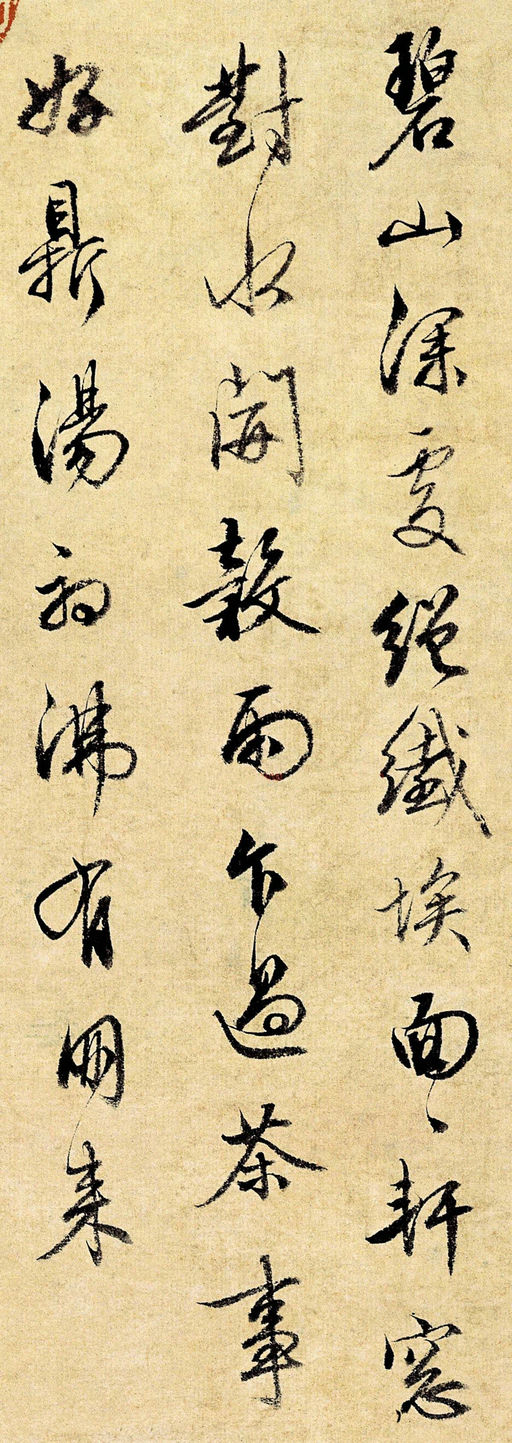 碧山深處絕纖埃面〻軒窓
對水開穀雨乍過茶事
好鼎湯初沸有朋來